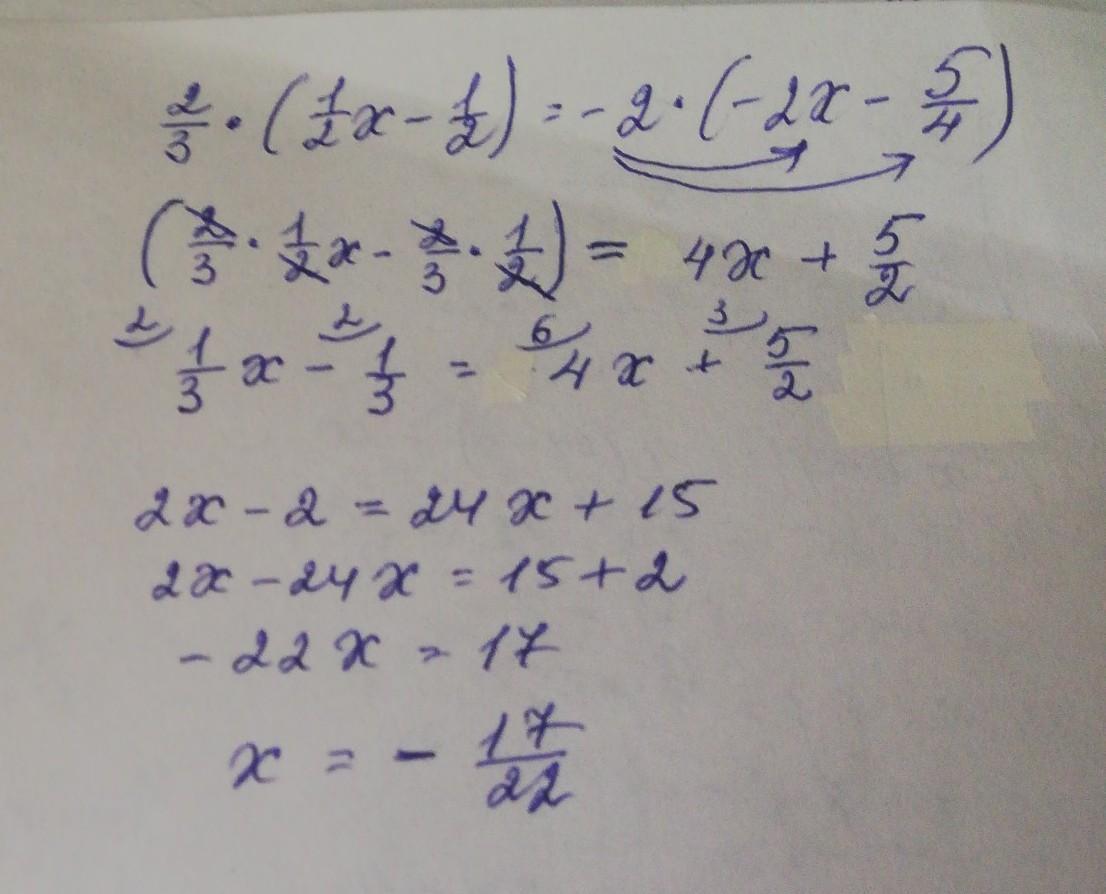 2/3 · (1/2 x - 1/2) = -2 · (-2x - 5/4)
(2/3 · 1/2 x - 2/3 · 1/2) = 4x + 5/2
2) 1/3 x - 2) 1/3 = 6) 4x + 3) 5/2
2x - 2 = 24x + 15
2x - 24x = 15 + 2
- 22x = 17
x = - 17/22